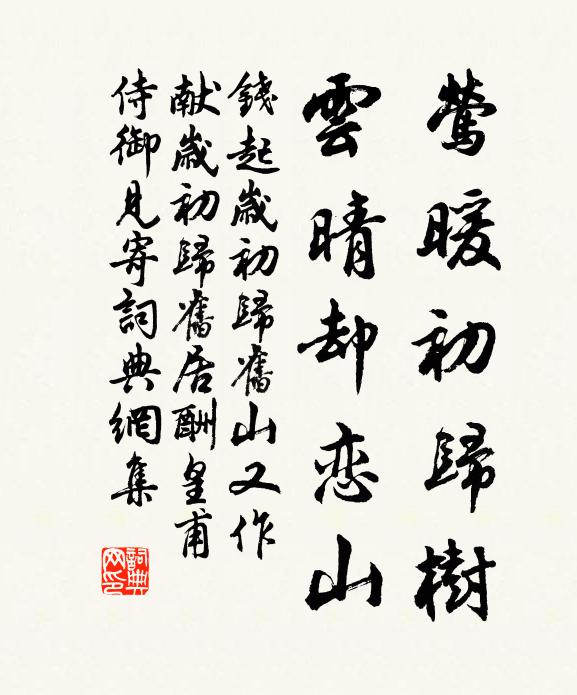 莺暖初歸樹
雲晴却恋山
錢起歲初歸舊山又作
献歲初歸舊居酬皇甫
侍御見寄詞典網集
詞典网印